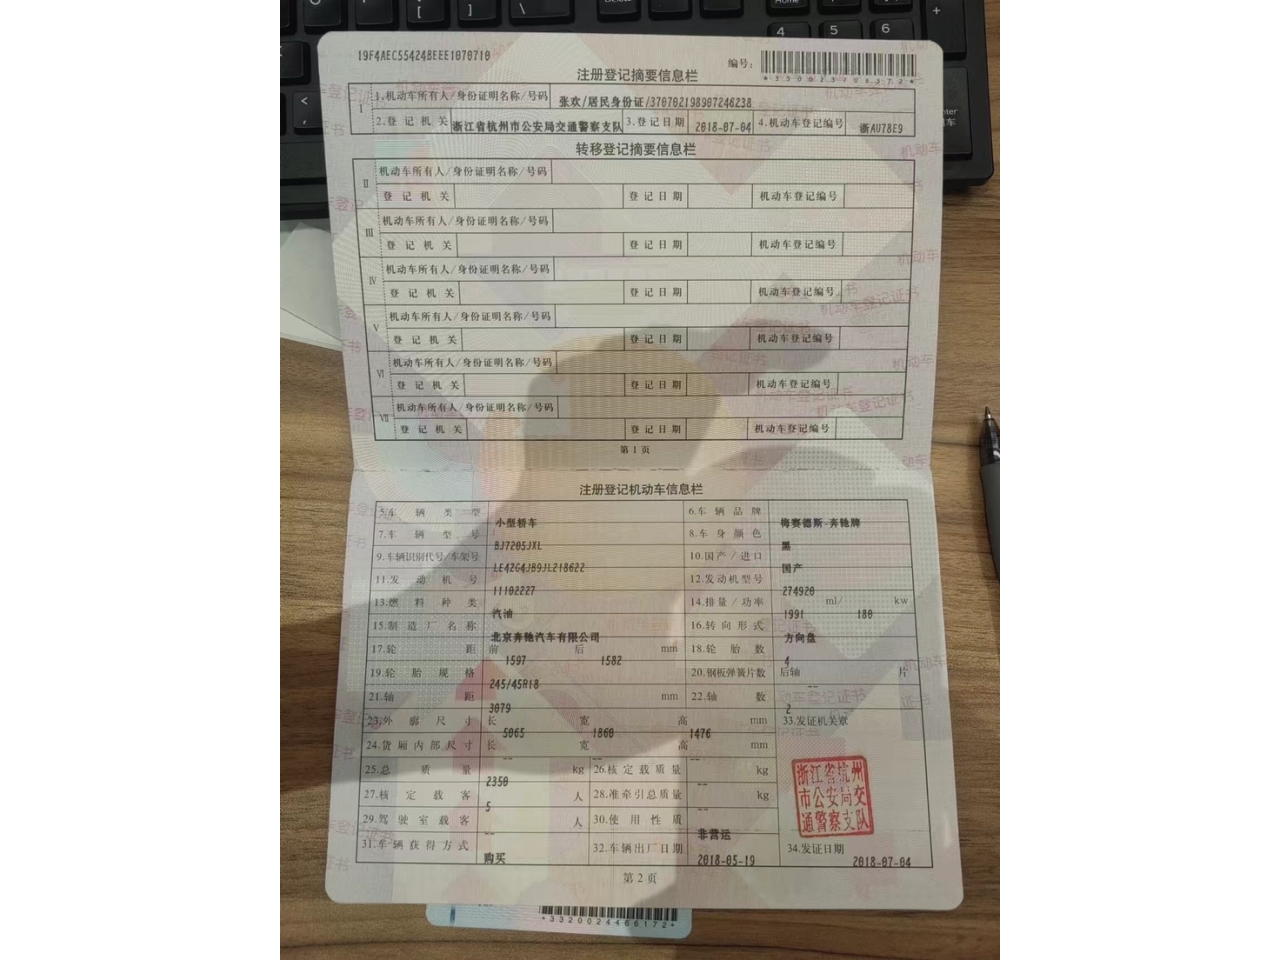 19F4AEC55424BEEE1070710
编号:
*330023706372*
注册登记摘要信息栏
I
1.机动车所有人/身份证明名称/号码 张欢/居民身份证/370702198907246238
2.登记机关 浙江省杭州市公安局交通警察支队 3.登记日期 2018-07-04 4.机动车登记编号 浙AU78E9
转移登记摘要信息栏
II 机动车所有人/身份证明名称/号码
登记机关 登记日期 机动车登记编号
III 机动车所有人/身份证明名称/号码
登记机关 登记日期 机动车登记编号
IV 机动车所有人/身份证明名称/号码
登记机关 登记日期 机动车登记编号
V 机动车所有人/身份证明名称/号码
登记机关 登记日期 机动车登记编号
VI 机动车所有人/身份证明名称/号码
登记机关 登记日期 机动车登记编号
VII 机动车所有人/身份证明名称/号码
登记机关 登记日期 机动车登记编号
第1页
注册登记机动车信息栏
5.车辆类型 小型轿车 6.车辆品牌 梅赛德斯-奔驰牌
7.车辆型号 BJ7205JXL 8.车身颜色 黑
9.车辆识别代号/车架号 LE42G4JB9JL218622 10.国产/进口 国产
11.发动机号 11102227 12.发动机型号 274920
13.燃料种类 汽油 14.排量/功率 1991 ml/ 180 kw
15.制造厂名称 北京奔驰汽车有限公司 16.转向形式 方向盘
17.轮距 前 1597 后 1582 mm 18.轮胎数 4
19.轮胎规格 245/45R18 20.钢板弹簧片数 后轴 -- 片
21.轴距 3079 mm 22.轴数 2
23.外廓尺寸 长 5065 宽 1860 高 1476 mm 33.发证机关章
24.货厢内部尺寸 长 -- 宽 -- 高 -- mm
25.总质量 2350 kg 26.核定载质量 -- kg
27.核定载客 5 人 28.准牵引总质量 -- kg
29.驾驶室载客 -- 人 30.使用性质 非营运
31.车辆获得方式 购买 32.车辆出厂日期 2018-05-19 34.发证日期 2018-07-04
浙江省杭州
市公安局交
通警察支队
第2页
*3320024466172*